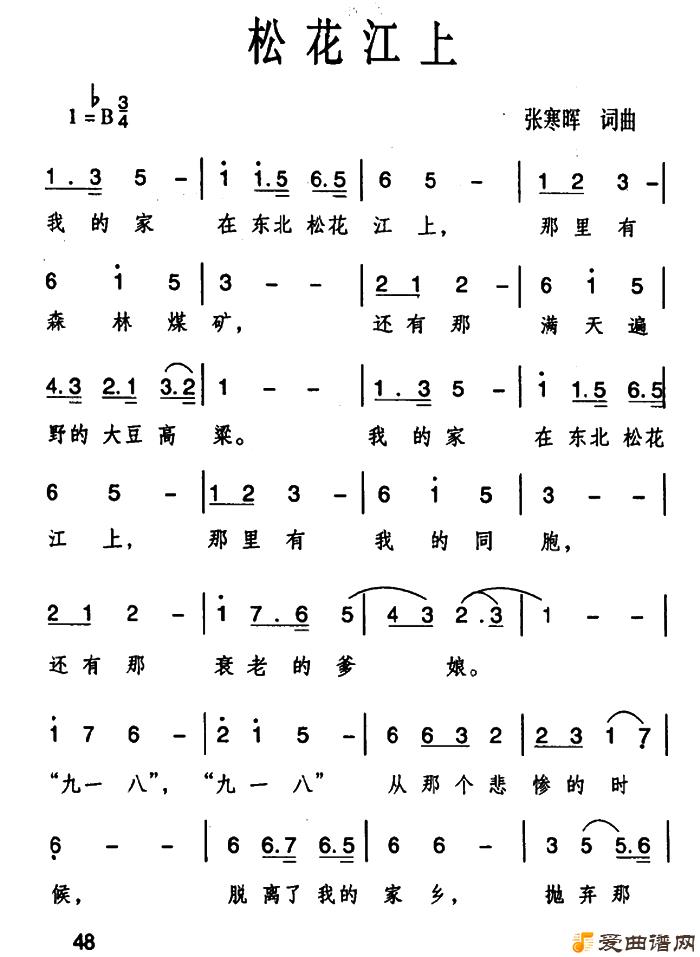 松花江上
1=♭B 3/4
张寒晖 词曲
1.3 5 - | i i.5 6.5 | 6 5 - | 1 2 3 - |
我 的 家 在 东北 松花 江 上， 那 里 有
6 i 5 | 3 - - | 2 1 2 - | 6 i 5 |
森 林 煤 矿， 还 有 那 满 天 遍
4.3 2.1 3.2 | 1 - - | 1.3 5 - | i 1.5 6.5 |
野的 大豆 高 粱。 我 的 家 在 东北 松花
6 5 - | 1 2 3 - | 6 i 5 | 3 - - |
江 上， 那 里 有 我 的 同 胞，
2 1 2 - | i 7.6 5 | 4 3 2.3 | 1 - - |
还 有 那 衰 老 的 爹 娘。
i 7 6 - | 2 i 5 - | 6 6 3 2 | 2 3 1 7 |
“九 一 八”， “九 一 八” 从 那 个 悲 惨 的 时
6 - - | 6 6.7 6.5 | 6 6 - | 3 5 5.6 |
候， 脱 离了 我的 家 乡， 抛 弃 那
48
爱曲谱网